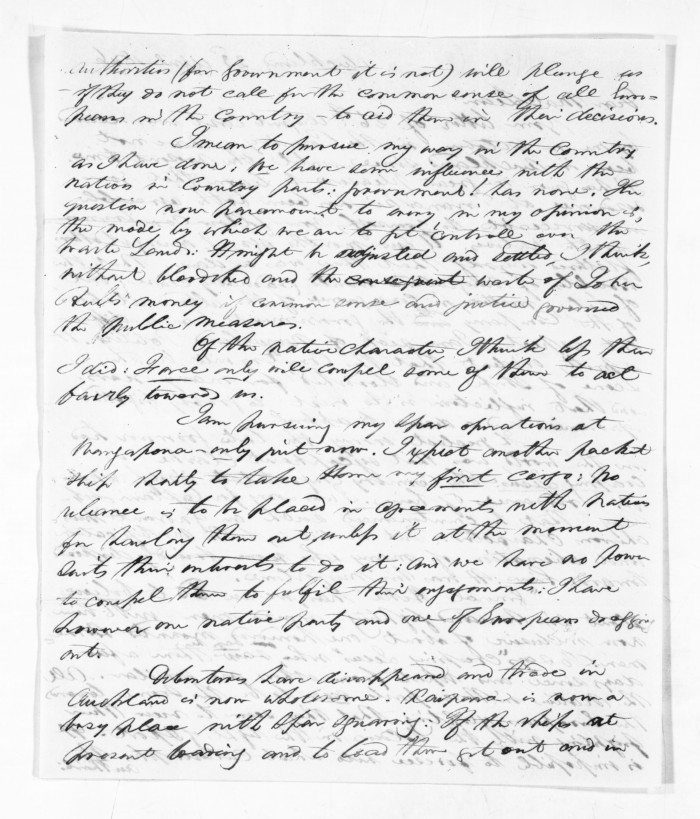 authorities (for Government it is not) will plunge us
if they do not call for the common sense of all Euro-
peans in the Country - to aid them in their decisions.
I mean to pursue my way in the Country
as I have done; We have some influence with the
natives in Country parts: government! has none. The
question now paramount to every, in my opinion is,
the mode by which we are to get controll over the
waste Lands: It might be adjusted and settled, I think,
without bloodshed and the consequent waste of John
Bull's money if common sense and justice governed
the public measures.
Of the native character, I think less than
I did: Force only will compel some of them to act
fairly towards us.
I am pursuing my Spar operations at
- only just now. I expect another packet
ship shortly to take Home my first cargo: No
reliance is to be placed in agreements with Natives
for hauling them out unless it at the moment
suits their interests to do it; and we have no power
to compel them to fulfil their engagements: I have
however one native party and one of Europeans dragging
out.
Debentures have disappeared and trade in
Auckland is now wholesome. Kaipara is now a
busy place with Spar squaring: If the ships at
present loading and to load there get out and in